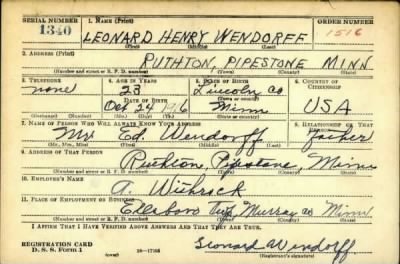 SERIAL NUMBER 1. NAME (Print) ORDER NUMBER
1340 LEONARD HENRY WENDORFF 1516
(First) (Middle) (Last)
2. ADDRESS (Print)
RUTHTON, PIPESTONE MINN
(Number and street or R. F. D. number) (Town) (County) (State)
3. TELEPHONE 4. AGE IN YEARS 5. PLACE OF BIRTH 6. COUNTRY OF CITIZENSHIP
none 23 Lincoln Co
DATE OF BIRTH (Town or county)
Oct 24 1916 Minn USA
(Exchange) (Number) (Mo.) (Day) (Yr.) (State or country)
7. NAME OF PERSON WHO WILL ALWAYS KNOW YOUR ADDRESS 8. RELATIONSHIP OF THAT PERSON
Mr Ed. Wendorff father
(Mr., Mrs., Miss) (First) (Middle) (Last)
9. ADDRESS OF THAT PERSON
Ruthton, Pipestone, Minn
(Number and street or R. F. D. number) (Town) (County) (State)
10. EMPLOYER'S NAME
A.
11. PLACE OF EMPLOYMENT OR BUSINESS
Twp. Murray Co Minn
(Number and street or R. F. D. number) (Town) (County) (State)
I AFFIRM THAT I HAVE VERIFIED ABOVE ANSWERS AND THAT THEY ARE TRUE.
REGISTRATION CARD Leonard Wendorff
D. S. S. Form 1 (Registrant's signature)